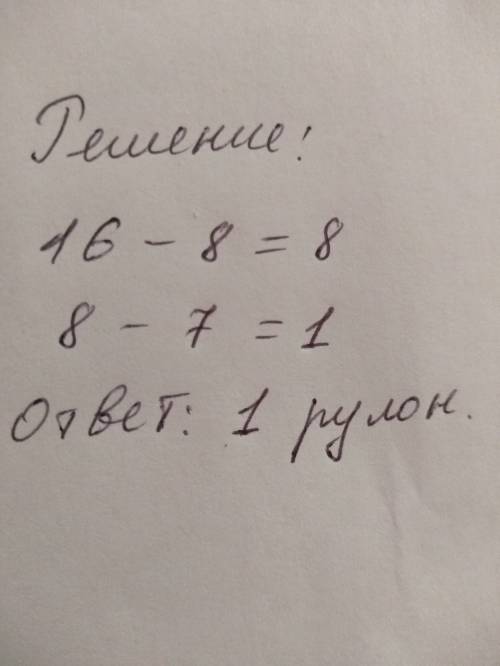 Решение!
16 - 8 = 8
8 - 7 = 1
Ответ: 1 рулон.